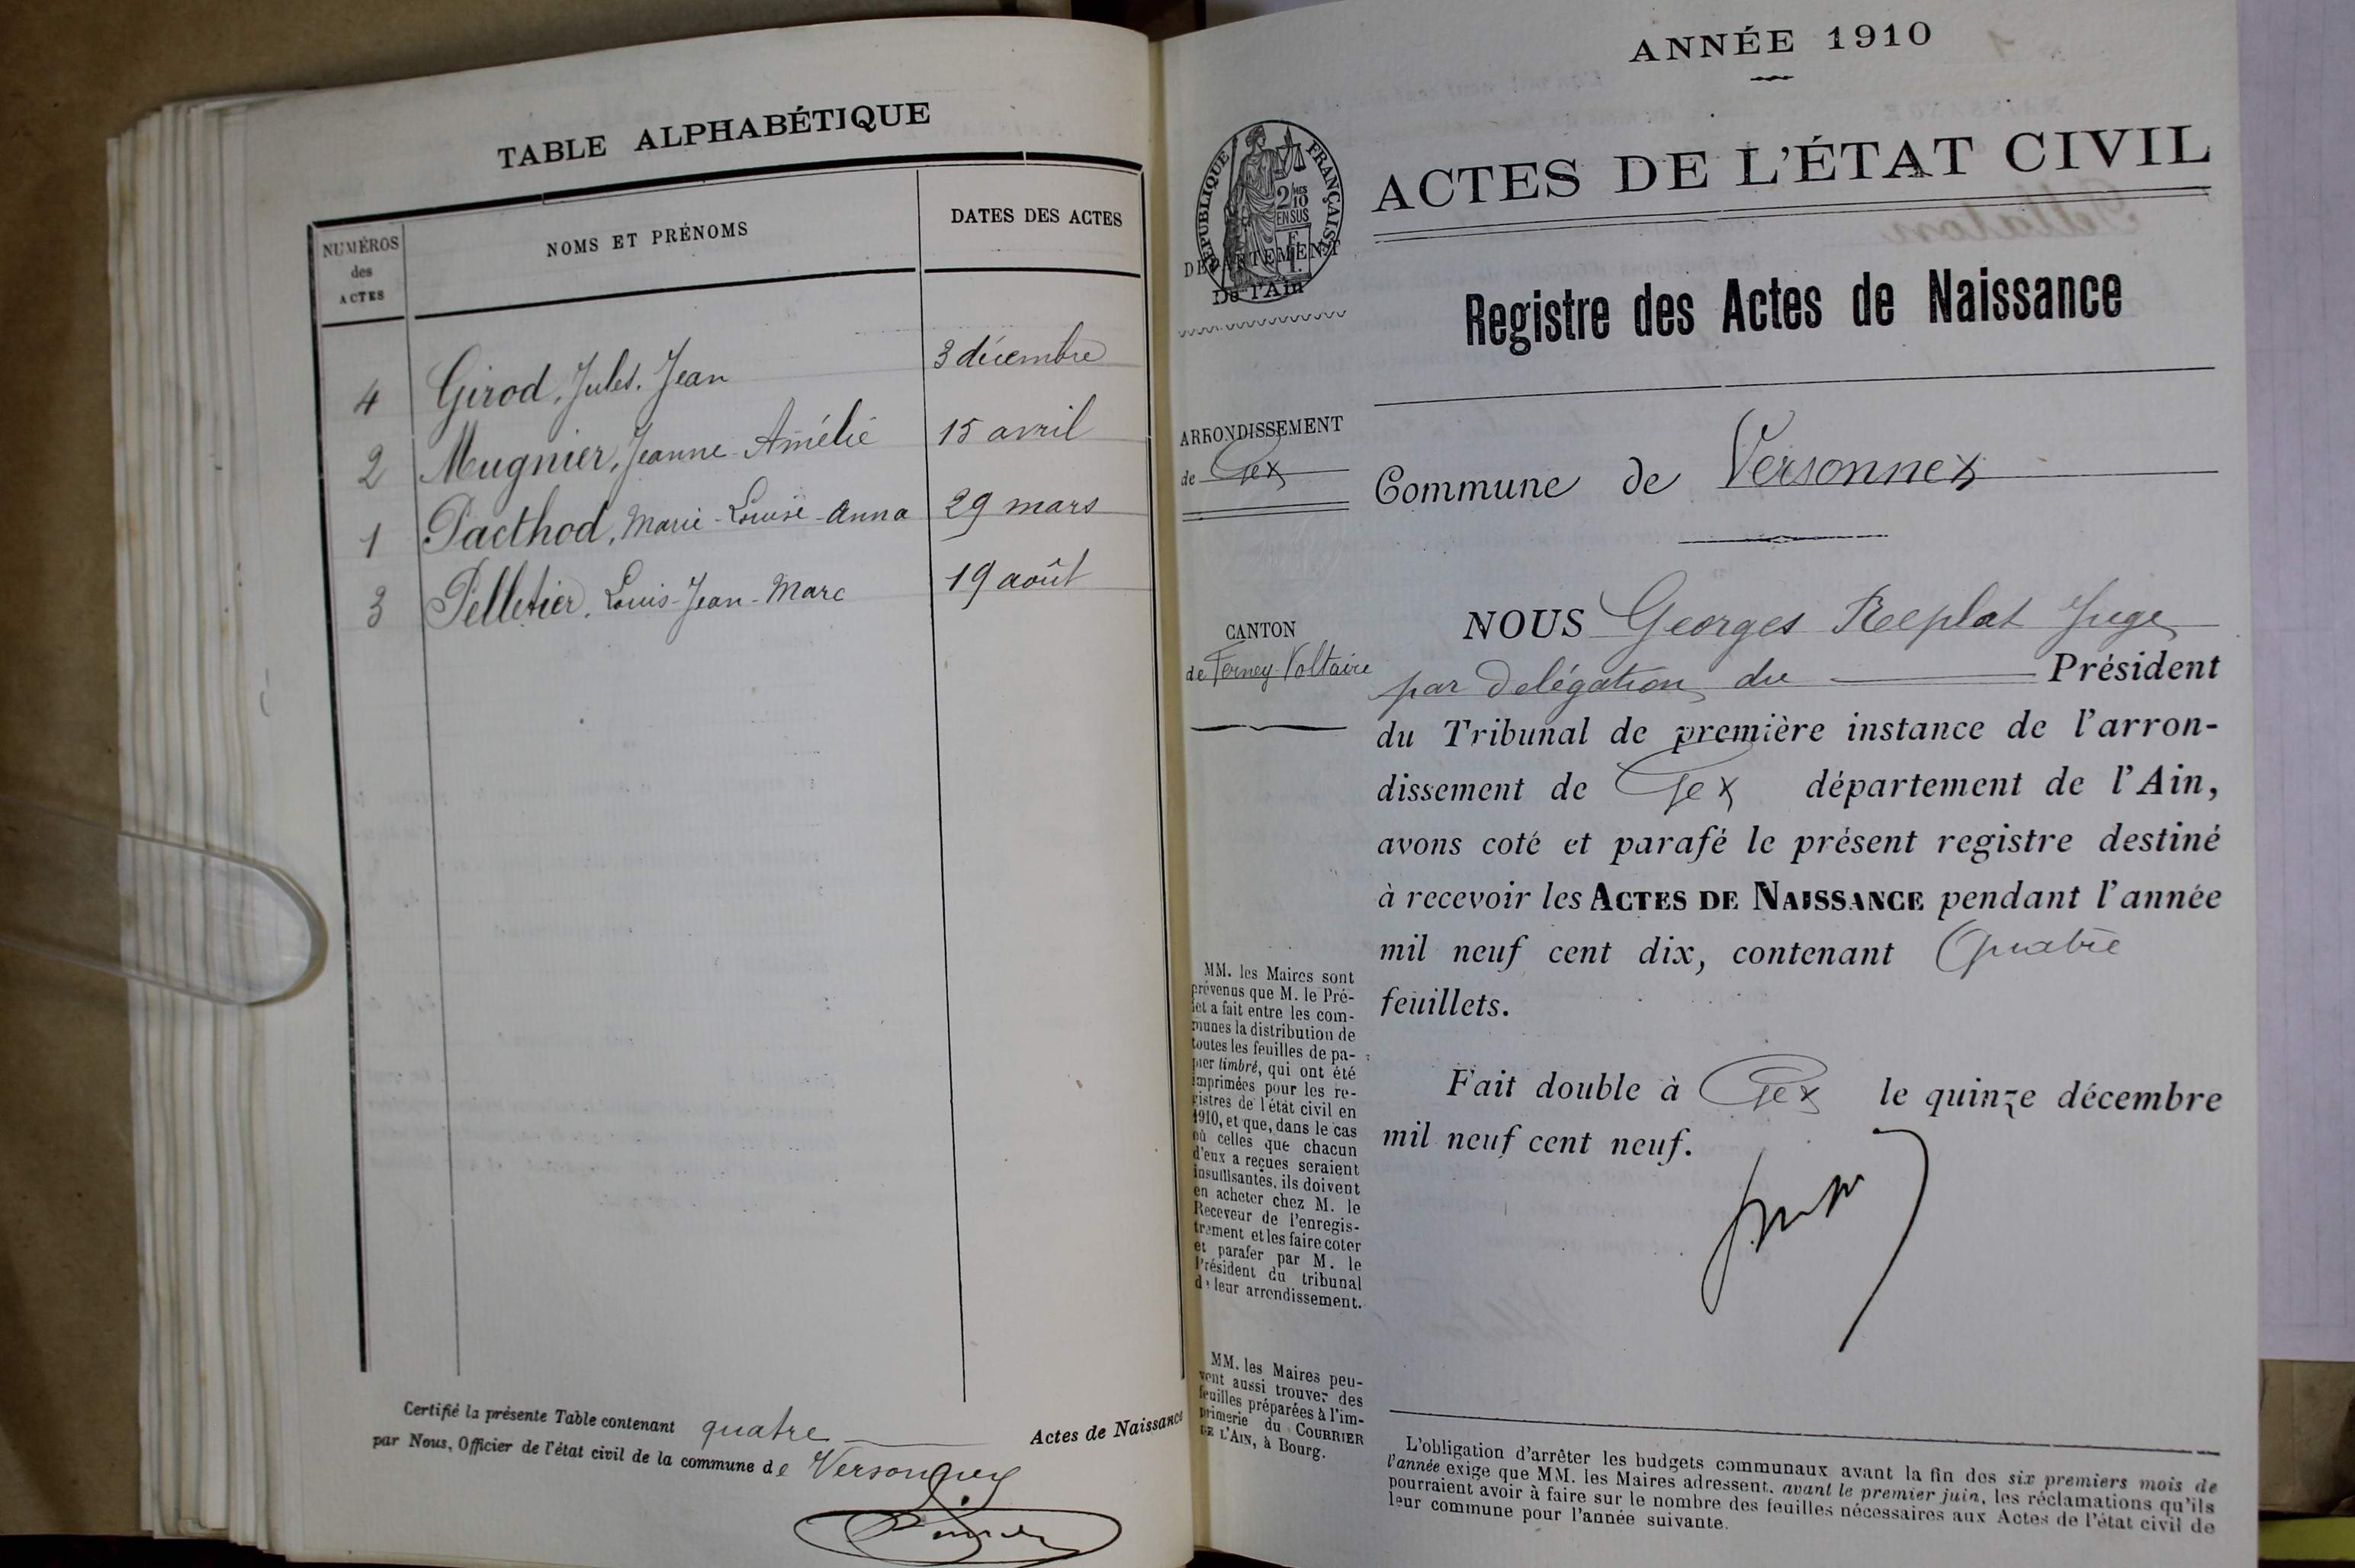 TABLE ALPHABÉTIQUE
NUMÉROS
des
ACTES
NOMS ET PRÉNOMS
DATES DES ACTES
4 Girod, Jules, Jean 3 décembre
2 Mugnier, Jeanne-Amélie 15 avril
1 Pacthod, Marie-Louise-Anna 29 mars
3 Pelletier, Louis-Jean-Marc 19 août
Certifié la présente Table contenant quatre Actes de Naissance
par Nous, Officier de l'état civil de la commune de Versonnex
ANNÉE 1910
RÉPUBLIQUE FRANÇAISE
2 MES
10
EN SUS
DÉPARTEMENT
De l'Ain
ACTES DE L'ÉTAT CIVIL
Registre des Actes de Naissance
ARRONDISSEMENT
de Gex
Commune de Versonnex
CANTON
de Ferney-Voltaire
NOUS Georges Replat Juge
par délégation du Président
du Tribunal de première instance de l'arron-
dissement de Gex département de l'Ain,
avons coté et parafé le présent registre destiné
à recevoir les ACTES DE NAISSANCE pendant l'année
mil neuf cent dix, contenant Quatre
feuillets.
Fait double à Gex le quinze décembre
mil neuf cent neuf.
MM. les Maires sont
prévenus que M. le Pré-
fet a fait entre les com-
munes la distribution de
toutes les feuilles de pa-
pier timbré, qui ont été
imprimées pour les re-
gistres de l'état civil en
1910, et que, dans le cas
où celles que chacun
d'eux a reçues seraient
insuffisantes, ils doivent
en acheter chez M. le
Receveur de l'enregis-
trement et les faire coter
et parafer par M. le
Président du tribunal
de leur arrondissement.
MM. les Maires peu-
vent aussi trouver des
feuilles préparées à l'im-
primerie du COURRIER
DE L'AIN, à Bourg.
L'obligation d'arrêter les budgets communaux avant la fin des six premiers mois de
l'année exige que MM. les Maires adressent, avant le premier juin, les réclamations qu'ils
pourraient avoir à faire sur le nombre des feuilles nécessaires aux Actes de l'état civil de
leur commune pour l'année suivante.